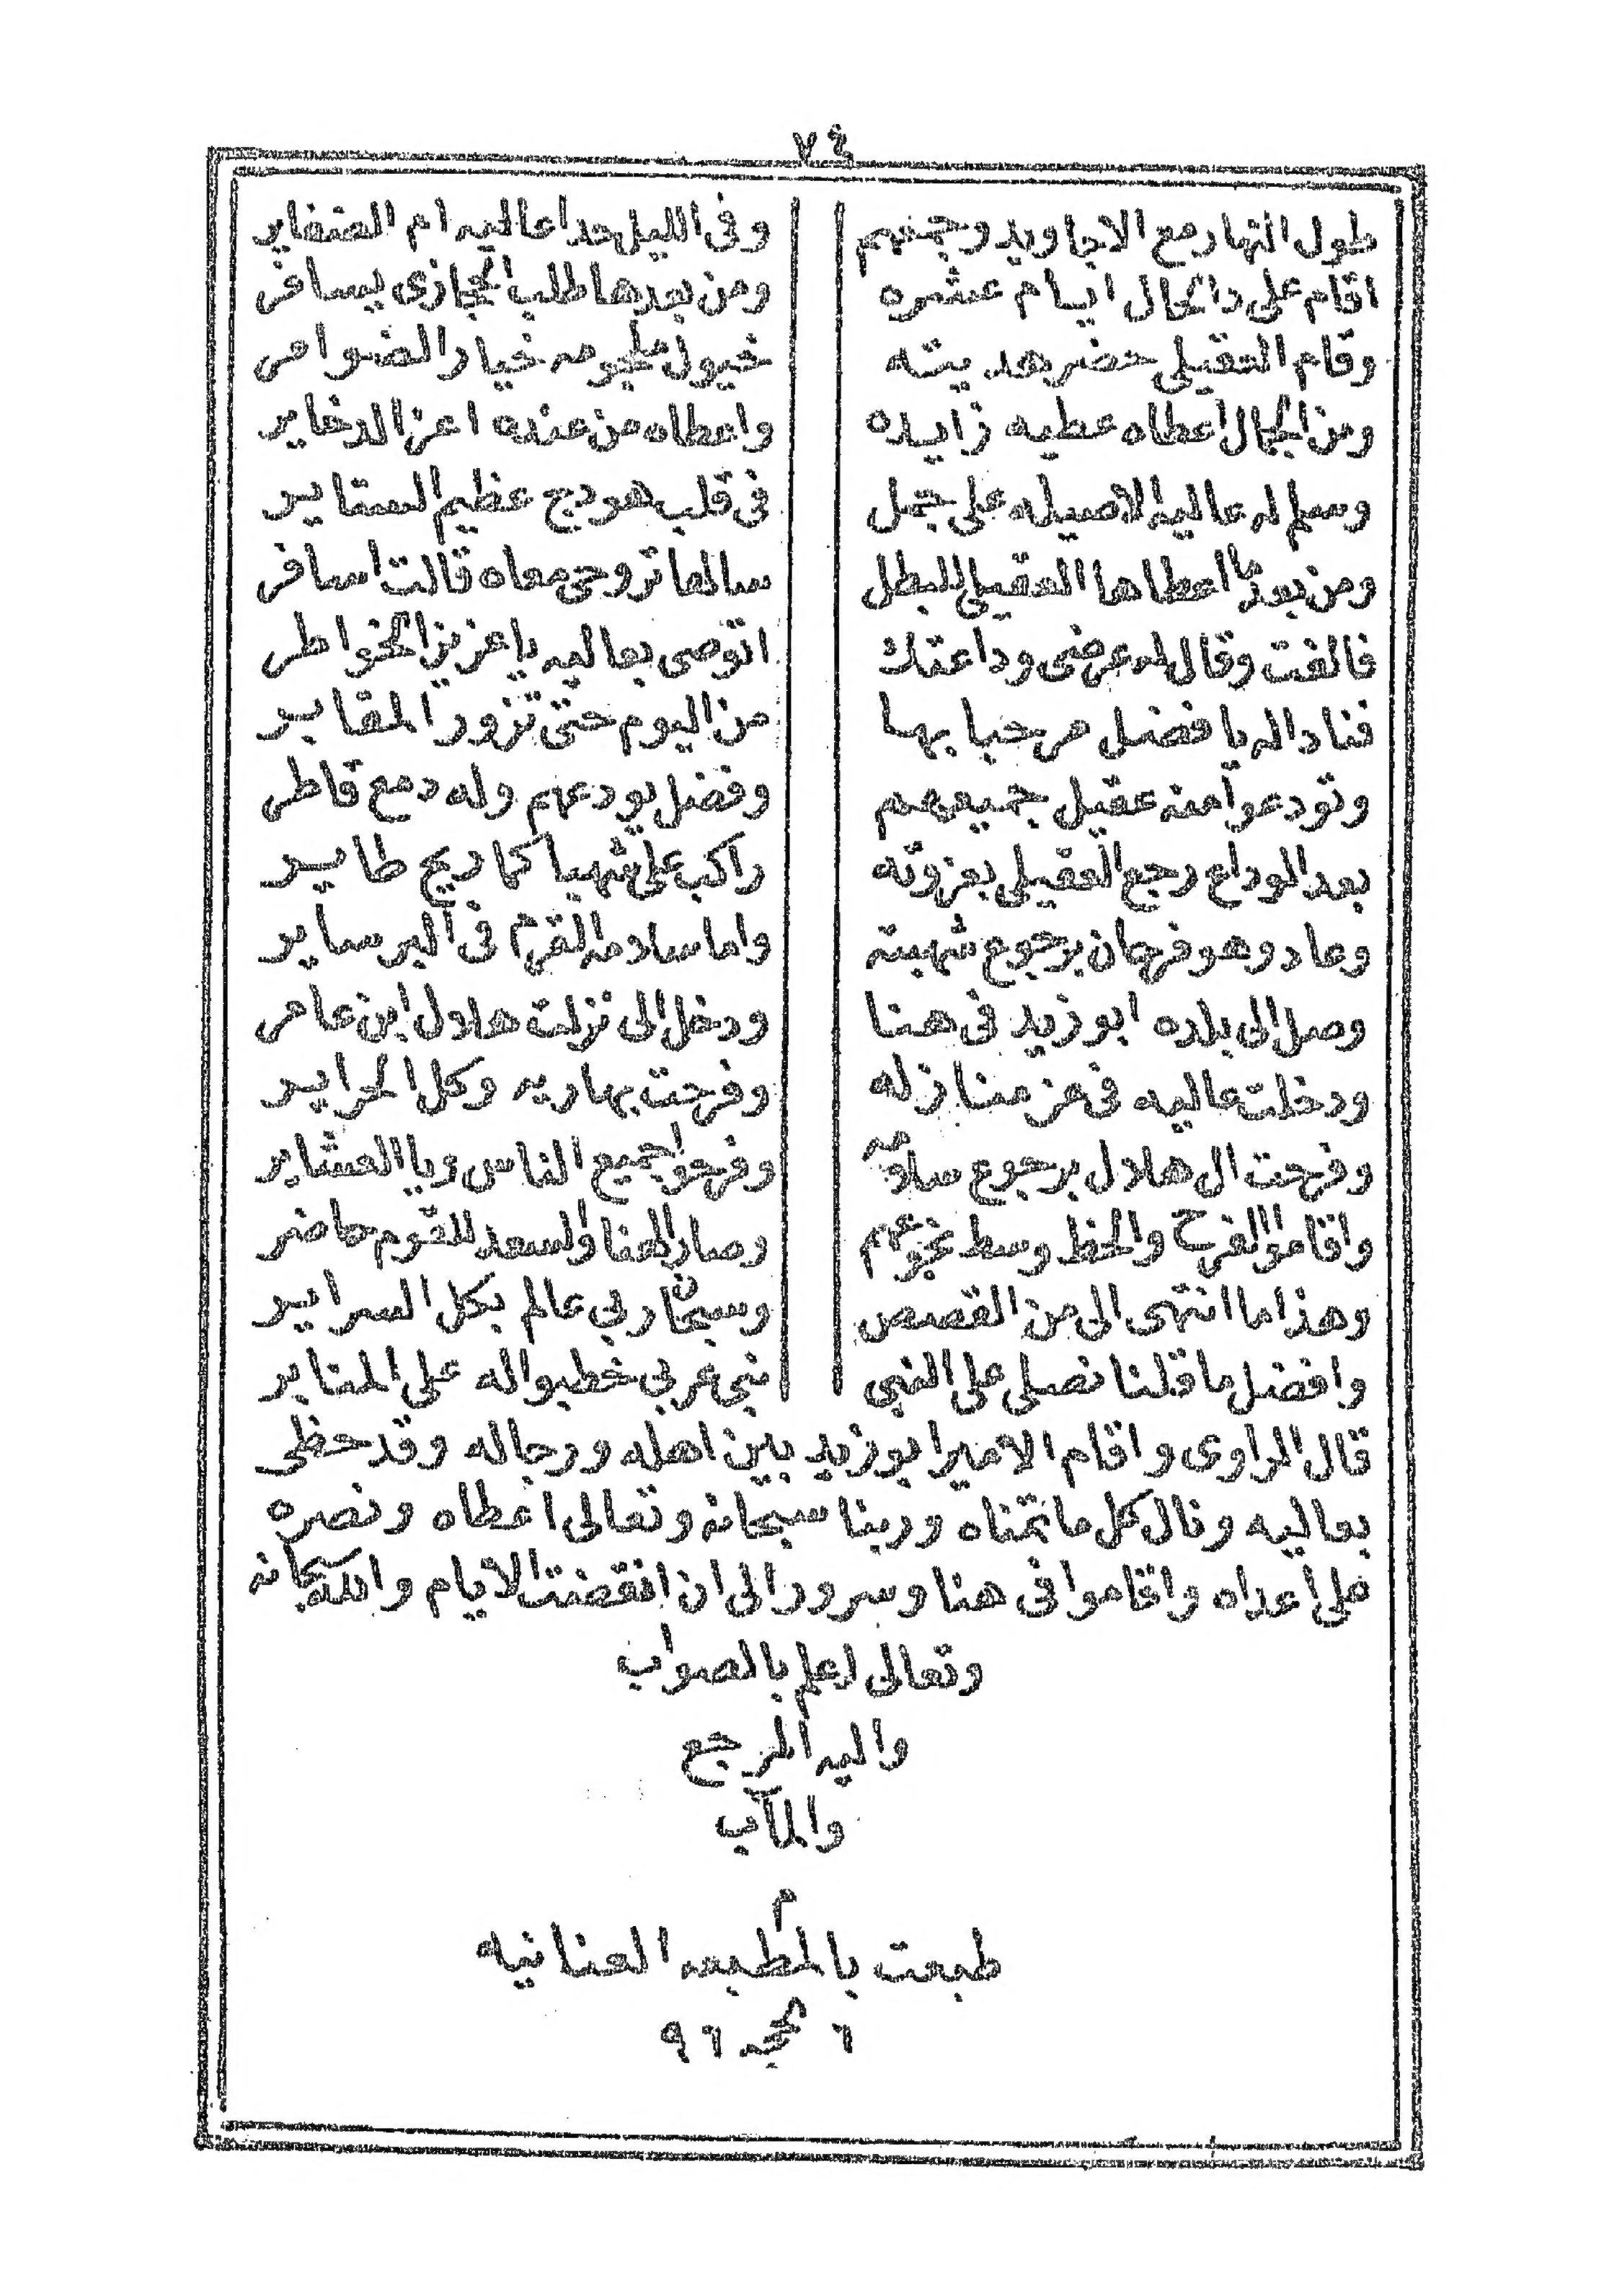 ٧٤
طول النهار مع الاجاويد وجمعهم وفى الليل حدا عاليه ام الضفاير
اقام على دا الحال ايام عشره ومن بعدها طلب الحجازى يسافر
وقام العقيلى حضر هديته خيول ملجومه خيار الضوامر
ومن الجمال اعطاه عطيه زايده واعطاه من عنده اعز الدخاير
وسلم له عاليه الاصيله على جمل فى قلب هودج عظيم الستاير
ومن بعد ما اعطاها العقيلى للبطل سالها تروحى معاه قالت اسافر
فالفت وقال له عرضى وداعتك اتوصى بعاليه يا عزيز الخواطر
فناداله يا فضل مرحبا بها من اليوم حتى تزور المقابر
وتودعوا منه عقيل جميعهم وفضل يودعهم وله دمع قاطر
بعد الوداع رجع العقيلى بعزوته راكب على شهبا كما ريح طاير
وعاد وهو فرحان برجوع شهبته واما سلامه القرم فى البر ساير
وصل الى بلده ابو زيد فى هنا ودخل الى نزلت هلال ابن عامر
ودخلت عاليه فى عز منازله وفرحت بها ريه وكل الحراير
وفرحت ال هلال برجوع سلامه وفرحوا جميع الناس ويا العشاير
واقاموا الفرح والحظ وسط نجوعهم وصار الهنا والسعد للقوم حاضر
وهذا ما انتهى الى من القصص وسبحان ربى عالم بكل السراير
وافضل ما قلنا نصلى على النبى نبى عربى خطبوا له على المنابر
قال الراوى واقام الامير ابو زيد بين اهله ورجاله وقد حظى
بعاليه ونال كل ما تمناه وربنا سبحانه وتعالى اعطاه ونصره
على اعداه واقاموا فى هنا وسرور الى ان انقضت الايام والله سبحانه
وتعالى اعلم بالصواب
واليه المرجع
والمآب
م
طبعت بالمطبعه العنانيه
٦ الحجه ٩٦